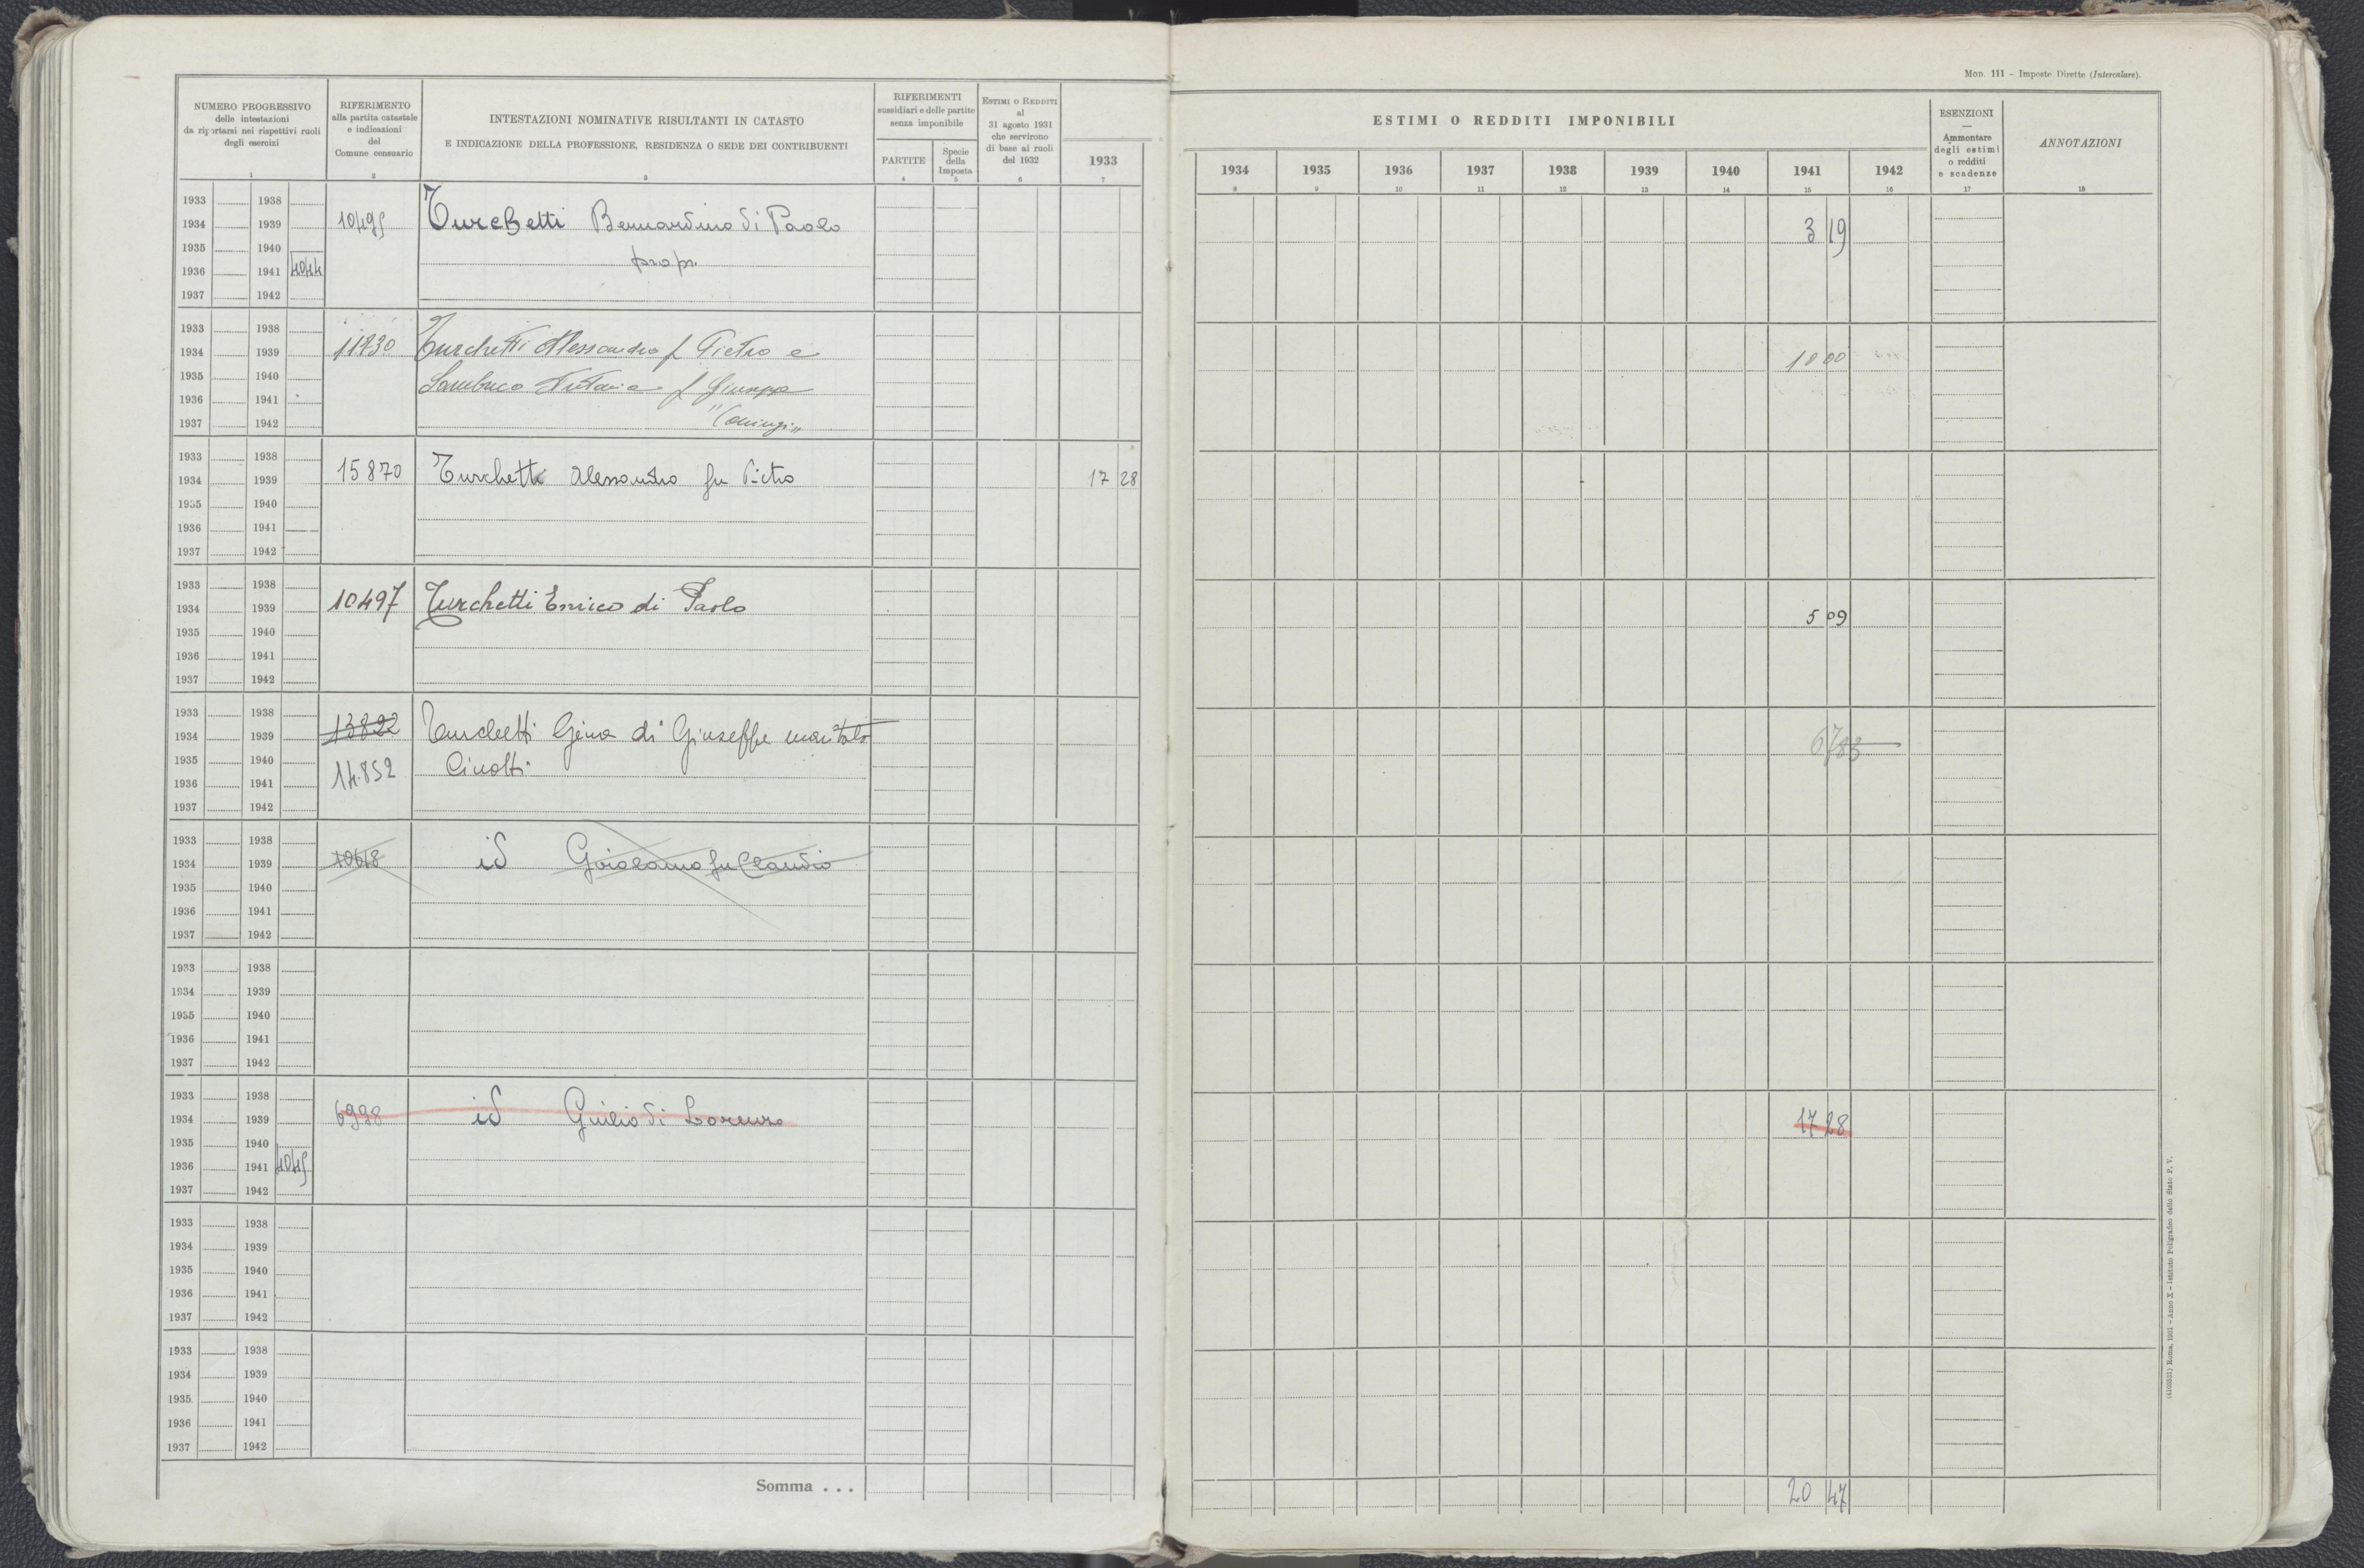 Mod. 111 – Imposte Dirette (Intercalare).
NUMERO PROGRESSIVO
delle intestazioni
da riportarsi nei rispettivi ruoli
degli esercizi
RIFERIMENTO
alla partita catastale
e indicazioni
del
Comune censuario
INTESTAZIONI NOMINATIVE RISULTANTI IN CATASTO
E INDICAZIONE DELLA PROFESSIONE, RESIDENZA O SEDE DEI CONTRIBUENTI
RIFERIMENTI
sussidiari e delle partite
senza imponibile
PARTITE
Specie
della
Imposta
Estimi o Redditi
al
31 agosto 1931
che servirono
di base ai ruoli
del 1932
1933
ESTIMI O REDDITI IMPONIBILI
1934 1935 1936 1937 1938 1939 1940 1941 1942
ESENZIONI
—
Ammontare
degli estimi
o redditi
e scadenze
ANNOTAZIONI
1 2 3 4 5 6 7 8 9 10 11 12 13 14 15 16 17 18
1933 1938
1934 1939 10495 Turchetti Bernardino di Paolo 3 19
1935 1940
1936 1941 4044 propr.
1937 1942
1933 1938
1934 1939 11830 Turchetti Alessandro f Pietro e 10 00
1935 1940 f Giuseppe
1936 1941
1937 1942 "Coniugi"
1933 1938
1934 1939 15870 Turchetti Alessandro fu Pietro 17 28
1935 1940
1936 1941
1937 1942
1933 1938
1934 1939 10497 Turchetti Enrico di Paolo 5 09
1935 1940
1936 1941
1937 1942
1933 1938
1934 1939 13822 Turchetti Gina di Giuseppe maritata 67 88
1935 1940 14.852 Cinotti
1936 1941
1937 1942
1933 1938
1934 1939 10618 id Girolamo fu Claudio
1935 1940
1936 1941
1937 1942
1933 1938
1934 1939
1935 1940
1936 1941
1937 1942
1933 1938
1934 1939 6998 id Giulio di Lorenzo 17 28
1935 1940
1936 1941 4045
1937 1942
1933 1938
1934 1939
1935 1940
1936 1941
1937 1942
1933 1938
1934 1939
1935 1940
1936 1941
1937 1942
Somma . . . 20 47
Roma, 1931 – Anno X – Istituto Poligrafico dello Stato P. V.